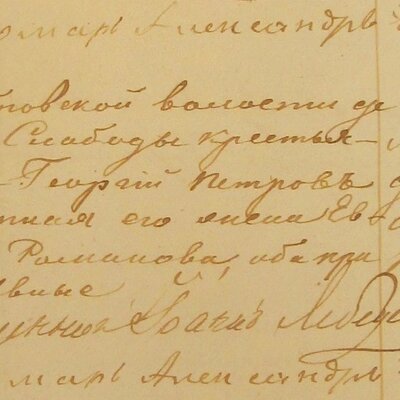 омарь Александръ
повской волости де
Слободы крестья-
Георгій Петровъ
нная его жена Ев-
Романова, оба пра
вные
Іоаннъ Лебеде
омарь Александръ